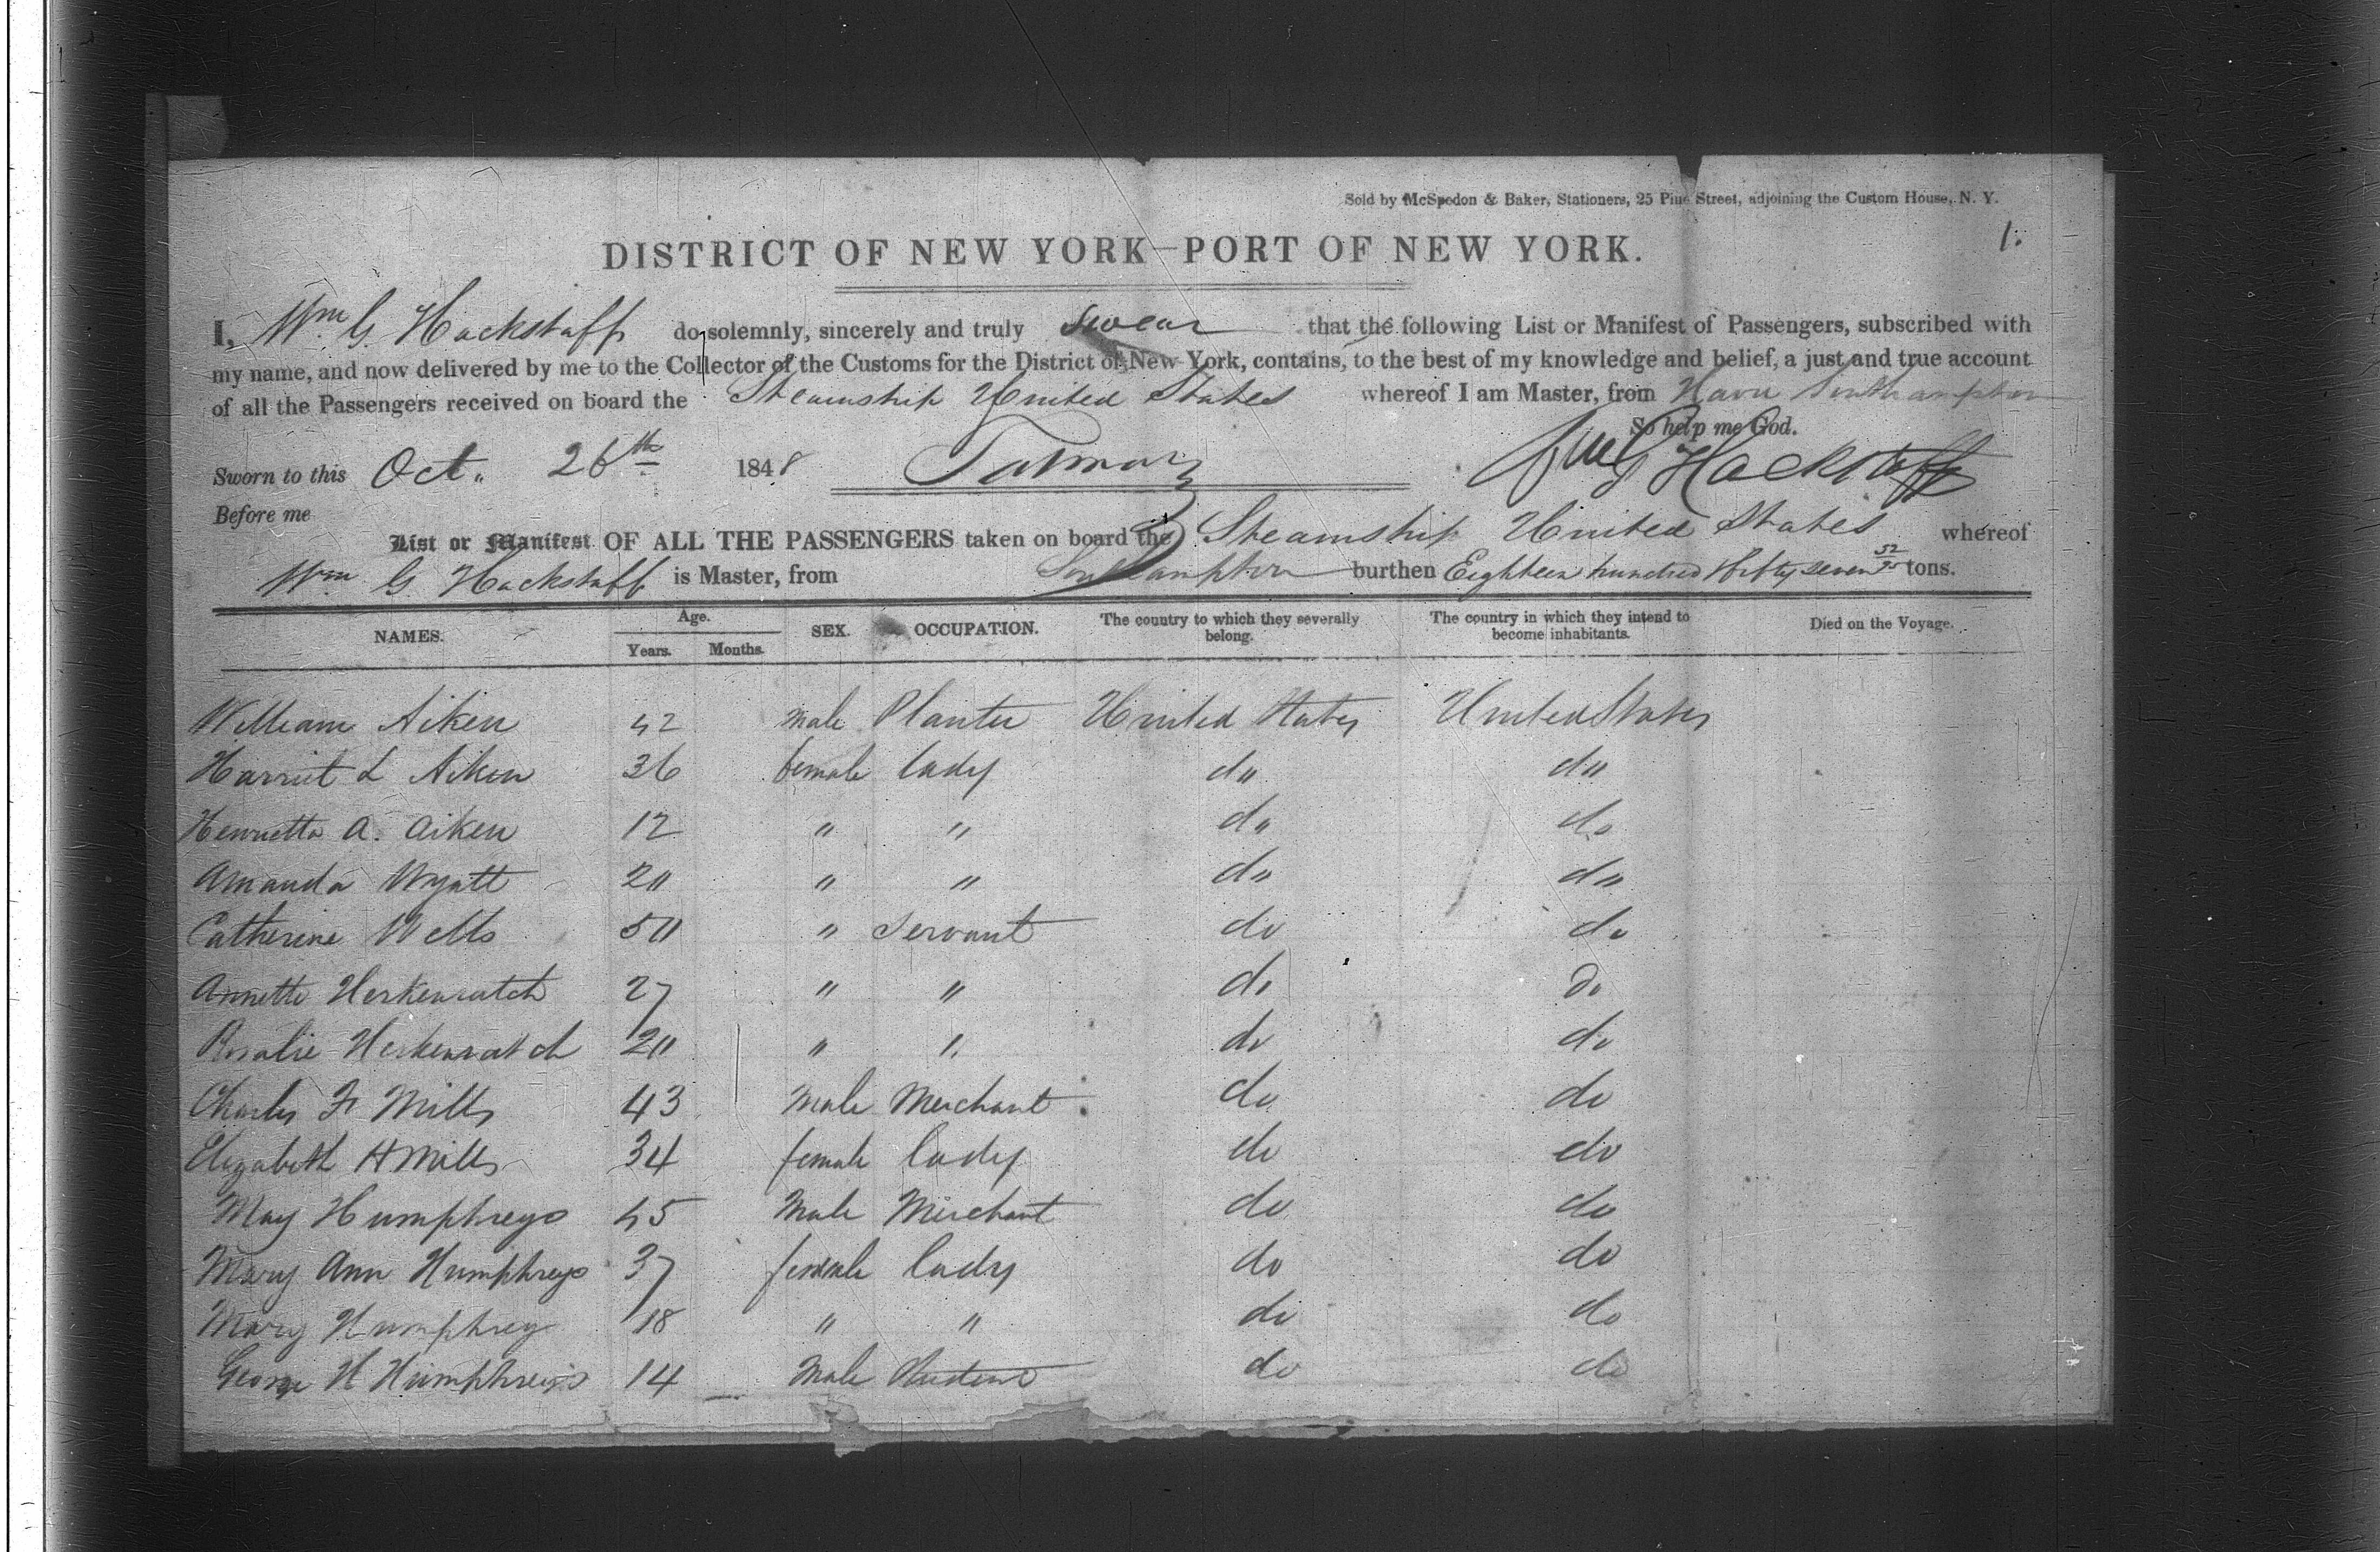 Sold by McSpedon & Baker, Stationers, 25 Pine Street, adjoining the Custom House, N. Y.
1.
DISTRICT OF NEW YORK—PORT OF NEW YORK.
I, Wm G. Hackstaff do solemnly, sincerely and truly swear that the following List or Manifest of Passengers, subscribed with
my name, and now delivered by me to the Collector of the Customs for the District of New York, contains, to the best of my knowledge and belief, a just and true account
of all the Passengers received on board the Steamship United States whereof I am Master, from Havre Southampton
So help me God.
Sworn to this Oct. 26th 1848 Wm G Hackstaff
Before me
List or Manifest OF ALL THE PASSENGERS taken on board the Steamship United States whereof
Wm G. Hackstaff is Master, from Southampton burthen Eighteen hundred & fifty seven 52/95 tons.
NAMES. Age. Years. Months. SEX. OCCUPATION. The country to which they severally belong. The country in which they intend to become inhabitants. Died on the Voyage.
William Aiken 42 male Planter United States United States
Harriet L Aiken 36 female lady do do
Henrietta A. Aiken 12 " " do do
Amanda Wyatt 20 " " do do
Catherine Wells 50 " Servant do do
Annette Herkenratch 27 " " do do
Rosalie Herkenratch 20 " " do do
Charles F Mills 43 male Merchant do do
Elizabeth H Mills 34 female lady do do
May Humphreys 45 Male Merchant do do
Mary Ann Humphreys 37 female lady do do
Mary Humphrey 18 " " do do
George H Humphreys 14 Male Student do do